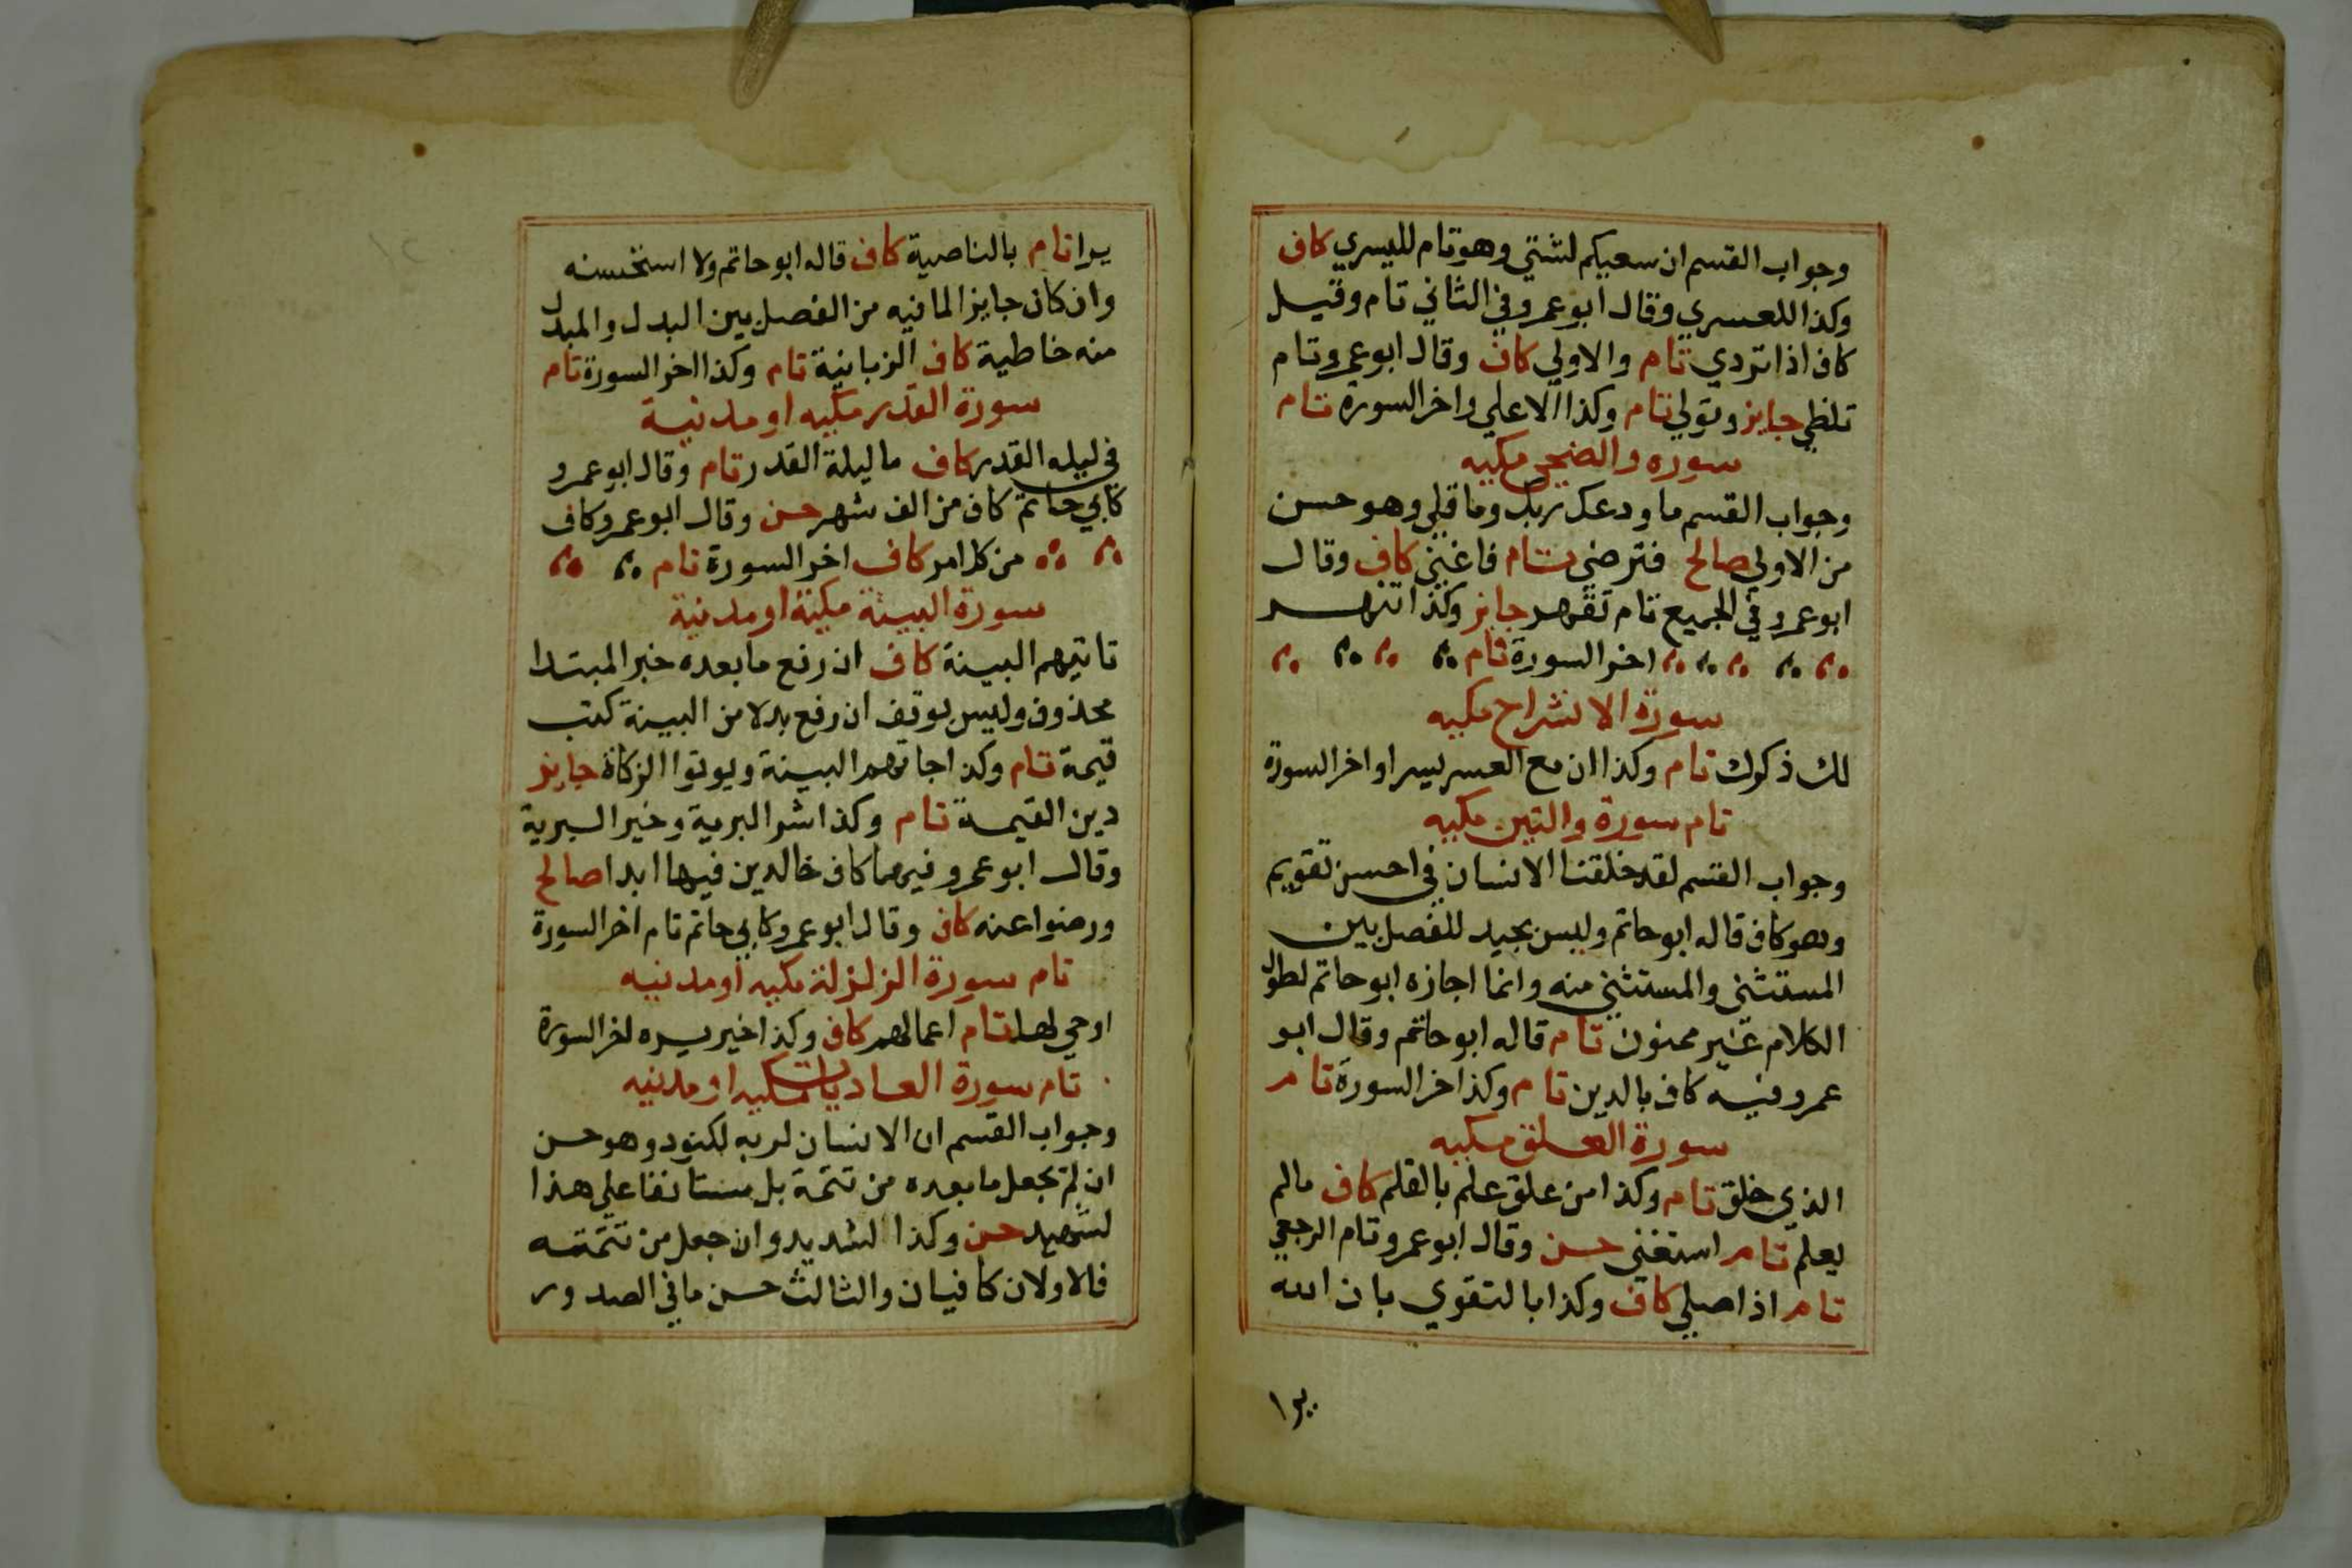 وجواب القسم ان سعيكم لشتي وهو تام لليسري كاف
وكذا للعسري وقال ابو عمرو في الثاني تام وقيل
كاف اذا تردي تام والاولي كاف وقال ابو عمرو تام
تلظي جايز وتولي تام وكذا الاعلي واخر السورة تام
سوره والضحي مكيه
وجواب القسم ما ودعك ربك وما قلي وهو حسن
من الاولي صالح فترضي تام فاغني كاف وقال
ابو عمرو في الجميع تام تقهر جايز وكذا تنهر
اخر السورة تام
سورة الانشراح مكيه
لك ذكرك تام وكذا ان مع العسر يسرا واخر السورة
تام سورة والتين مكيه
وجواب القسم لقد خلقنا الانسان في احسن تقويم
وهو كاف قاله ابو حاتم وليس بجيد للفصل بين
المستثني والمستثني منه وانما اجازه ابو حاتم لطول
الكلام غير ممنون تام قاله ابو حاتم وقال ابو
عمرو فيه كاف بالدين تام وكذا اخر السورة تام
سورة العلق مكيه
الذي خلق تام وكذا من علق علم بالقلم كاف مالم
يعلم تام استغني حسن وقال ابو عمرو تام الرجعي
تام اذا صلي كاف وكذا بالتقوي بان الله
يرا
يرا تام بالناصية كاف قاله ابو حاتم ولا استحسنه
وان كان جايزا لما فيه من الفصل بين البدل والمبدل
منه خاطية كاف الزبانية تام وكذا اخر السورة تام
سورة القدر مكيه او مدنية
في ليله القدر كاف ما ليلة القدر تام وقال ابو عمرو
كابي حاتم كاف من الف شهر حسن وقال ابو عمرو كاف
من كل امر كاف اخر السورة تام
سورة البينة مكية او مدنية
تاتيهم البينة كاف ان رفع ما بعده خبر المبتدا
محذوف وليس بوقف ان رفع بدلا من البينة كتب
قيمة تام وكذا جاتهم البينة ويوتوا الزكاة جايز
دين القيمة تام وكذا شر البرية وخير البرية
وقال ابو عمرو فيهما كاف خالدين فيها ابدا صالح
ورضوا عنه كاف وقال ابو عمرو كابي حاتم تام اخر السورة
تام سورة الزلزلة مكيه او مدنيه
اوحي لها تام اعمالهم كاف وكذا خير يره اخر السورة
تام سورة العاديات مكيه او مدنيه
وجواب القسم ان الانسان لربه لكنود وهو حسن
ان لم تجعل ما بعده من تتمة بل مستانفا علي هذا
لشهيد حسن وكذا لشديد وان جعل من تتمته
فالاولان كافيان والثالث حسن ما في الصدور